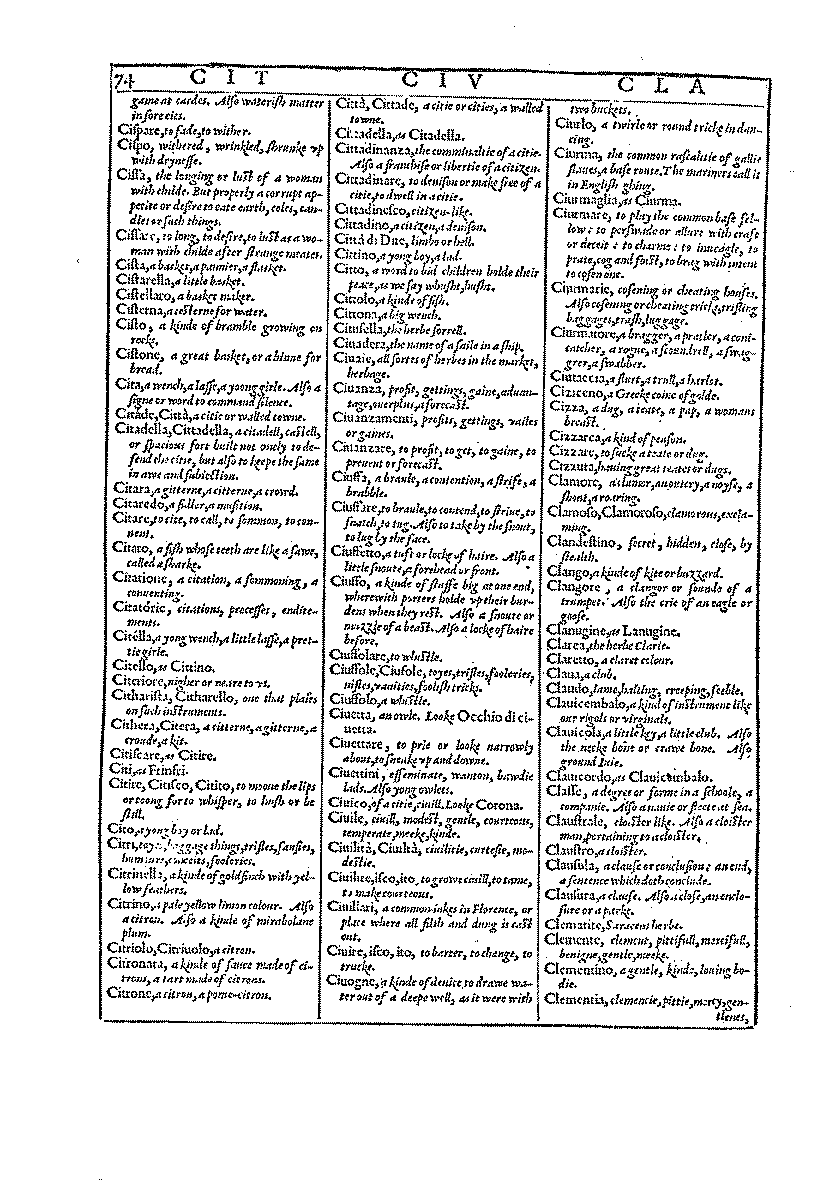 74 CIT CIV CLA
game at cardes. Also waterish matter
in sore eies.
Cispare, to fade, to wither.
Cispo, withered, wrinkled, shrunke vp
with drynesse.
Cissa, the longing or lust of a woman
with childe. But properly a corrupt ap-
petite or desire to eate earth, coles, can-
dles or such things.
Cissare, to long, to desire, to lust as a wo-
man with childe after strange meates.
Cista, a basket, a pannier, a flasket.
Cistarella, a little basket.
Cistellaro, a basket maker.
Cisterna, a cesterne for water.
Cisto, a kinde of bramble growing on
rocks.
Cistone, a great basket, or a blune for
bread.
Cita, a wench, a lasse, a yoong girle. Also a
signe or word to command silence.
Citade, Città, a citie or walled towne.
Citadella, Cittadella, a citadell, castell,
or spacious fort built not onely to de-
fend the citie, but also to keepe the same
in awe and subiection.
Citara, a gitterne, a citterne, a crowd.
Citaredo, a fidler, a musition.
Citare, to cite, to call, to sommon, to con-
uent.
Citaro, a fish whose teeth are like a sawe,
called a sharke.
Citatione, a citation, a sommoning, a
conuenting.
Citatórie, citations, processes, endite-
ments.
Citélla, a yong wench, a little lasse, a pret-
tie girle.
Citello, as Cittino.
Citeriore, nigher or neare to vs.
Citharista, Citharello, one that plaies
on such instruments.
Cithera, Citera, a citterne, a gitterne, a
croude, a kit.
Citiscare, as Citire.
Citi, as
Citire, Citisco, Citito, to mooue the lips
or toong for to whisper, to hush or be
still.
Cito, a yong boy or lad.
Citri, toyes, baggage things, trifles, fansies,
humours, conceits, fooleries.
Citrinella, a kinde of goldfinch with yel-
low feathers.
Citrino, a pale yellow limon colour. Also
a citron. Also a kinde of mirabolane
plum.
Citriolo, Citriuolo, a citron.
Citronata, a kinde of sauce made of ci-
trons, a tart made of citrons.
Citrone, a citron, a pome-citron.
Città, Cittade, a citie or cities, a walled
towne.
Cittadella, as Citadella.
Cittadinanza, the comminaltie of a citie.
Also a franchise or libertie of a citizen.
Cittadinare, to denison or make free of a
citie, to dwell in a citie.
Cittadinesco, citizen-like.
Cittadino, a citizen, a denison.
Città di Dite, limbo or hell.
Cittino, a yong boy, a lad.
Citto, a word to bid children holde their
peace, as we say whusht, husht.
Cittolo, a kinde of fish.
Cittona, a big wench.
Citusella, the herbe sorrell.
Ciuadera, the name of a saile in a ship.
Ciuaie, all sortes of herbes in the market,
herbage.
Ciuanza, profit, gettings, gaine, aduan-
tage, ouerplus, a forecast.
Ciuanzamenti, profits, gettings, vailes
or gaines.
Ciuanzare, to profit, to get, to gaine, to
preuent or forecast.
Ciuffa, a braule, a contention, a strife, a
brabble.
Ciuffare, to braule, to contend, to striue, to
snatch, to tug. Also to take by the snout,
to lug by the face.
Ciuffetto, a tuft or locke of haire. Also a
little snoute, a forehead or front.
Ciuffo, a kinde of staffe big at one end,
wherewith porters holde vp their bur-
dens when they rest. Also a snoute or
nuzzle of a beast. Also a locke of haire
before.
Ciuffolare, to whistle.
Ciuffole, Ciufole, toyes, trifles, fooleries,
nifles, vanities, foolish tricks.
Ciuffolo, a whistle.
Ciuetta, an owle. Looke Occhio di ci-
uetta.
Ciuettare, to prie or looke narrowly
about, to sneake vp and downe.
Ciuettini, effeminate, wanton, bawdie
lads. Also yong owlets.
Ciuico, of a citie, ciuill. Looke Corona.
Ciuile, ciuill, modest, gentle, courteous,
temperate, meeke, kinde.
Ciuilità, Ciuiltà, ciuilitie, curtesie, mo-
destie.
Ciuilire, isco, ito, to growe ciuill, to tame,
to make courteous.
Ciuillari, a common iakes in Florence, or
place where all filth and dung is cast
out.
Ciuire, isco, ito, to barter, to change, to
trucke.
Ciuogne, a kinde of deuice to drawe wa-
ter out of a deepe well, as it were with
two buckets.
Ciurlo, a twirle or round tricke in dan-
cing.
Ciurma, the common raskalitie of gallie
slaues, a base route. The mariners call it
in English ging.
Ciurmaglia, as Ciurma.
Ciurmare, to play the common base fel-
low: to perswade or allure with craft
or deceit: to charme: to inueagle, to
prate, cog and foist, to brag with intent
to cosen one.
Ciurmarie, cosening or cheating houses.
Also cosening or cheating tricks, trifling
baggages, trash, luggage.
Ciurmatore, a bragger, a pratler, a coni-
catcher, a rogue, a scoundrell, a swag-
grer, a swabber.
Ciutaccia, a slut, a trull, a harlot.
Ciziceno, a Greeke coine of golde.
Cizza, a dug, a teate, a pap, a womans
breast.
Cizzarca, a kind of peason.
Cizzare, to sucke a teate or dug.
Cizzuta, hauing great teates or dugs.
Clamore, a clamor, an outcry, a noyse, a
shout, a roaring.
Clamoso, Clamoroso, clamorous, exclai-
ming.
Clandestino, secret, hidden, close, by
stealth.
Clango, a kinde of kite or buzzard.
Clangore, a clangor or sounde of a
trumpet. Also the crie of an eagle or
goose.
Clanugine, as Lanugine.
Clarea, the herbe Clarie.
Claretto, a claret colour.
Claua, a club.
Claudo, lame, halting, creeping, feeble.
Clauicembalo, a kinde of instrument like
our rigols or virginals.
Clauicola, a little key, a little club. Also
the necke bone or crawe bone. Also
ground Iuie.
Clauicordo, as Clauicembalo.
Classe, a degree or forme in a schoole, a
companie. Also a nauie or fleete at sea.
Claustrale, cloister like. Also a cloister
man, pertaining to a cloister.
Claustro, a cloister.
Clausula, a clause or conclusion: an end,
a sentence which doth conclude.
Clausura, a clause. Also a close, an enclo-
sure or a parke.
Clematite, Saracens herbe.
Clemente, clement, pittifull, mercifull,
benigne, gentle, meeke.
Clementino, a gentle, kinde, louing bo-
die.
Clementia, clemencie, pittie, mercy, gen-
tlenes,